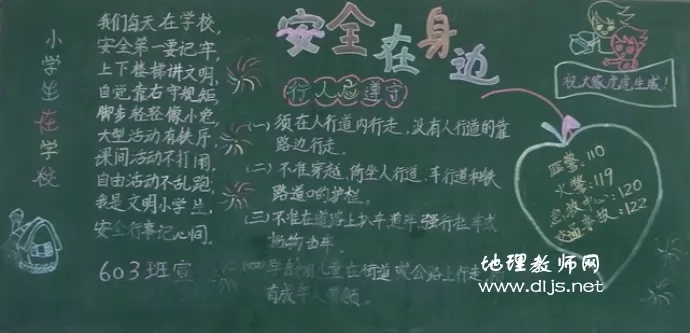 小学生在学校
我们每天在学校，
安全第一要记牢，
上下楼梯讲文明，
自觉靠右守规矩，
脚步轻轻像小兔，
大型活动有秩序，
课间活动不打闹，
自由活动不乱跑，
我是文明小学生，
安全行事记心间。
603班宣
安全在身边
行人必遵守
(一) 须在人行道内行走，没有人行道的靠
路边行走。
(二) 不准穿越、倚坐人行道、车行道和铁
路道口的护栏。
(三) 不准在道路上扒车、追车、强行拦车或
抛物击车。
儿童在街道或公路上行走，
成年人带领。
祝大家虎虎生威！
匪警：110
火警：119
急救中心：120
交通事故：122
地理教师网
www.dljs.net